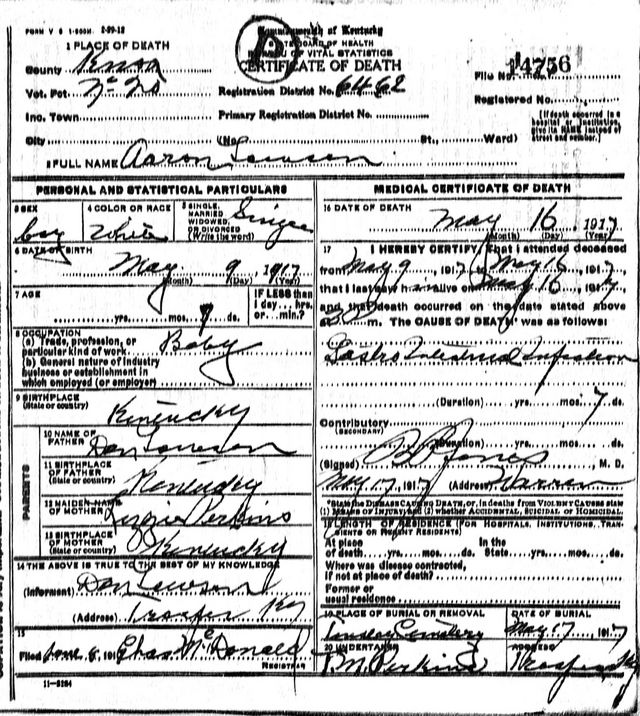 FORM V S 1-500M. 2-29-12
Commonwealth of Kentucky
STATE BOARD OF HEALTH
BUREAU OF VITAL STATISTICS
CERTIFICATE OF DEATH
1 PLACE OF DEATH
County Knox
Vot. Pct
Inc. Town
City
Registration District No. 6462
Primary Registration District No.
(No. St., Ward)
File No. 14756
Registered No.
[If death occurred in a
hospital or institution,
give its NAME instead of
street and number.]
2 FULL NAME Aaron Lawson
PERSONAL AND STATISTICAL PARTICULARS
3 SEX
boy
4 COLOR OR RACE
White
5 SINGLE,
MARRIED
WIDOWED
OR DIVORCED
(Write the word)
Single
6 DATE OF BIRTH
May 9 1917
(Month) (Day) (Year)
7 AGE
yrs. mos. 7 ds.
IF LESS than
1 day... hrs.
or ... min.?
8 OCCUPATION
(a) Trade, profession, or
particular kind of work Baby
(b) General nature of industry
business or establishment in
which employed (or employer)
9 BIRTHPLACE
(State or country)
Kentucky
PARENTS
10 NAME OF
FATHER
Dan Lawson
11 BIRTHPLACE
OF FATHER
(State or country)
Kentucky
12 MAIDEN NAME
OF MOTHER
Lizzie Perkins
13 BIRTHPLACE
OF MOTHER
(State or country)
Kentucky
14 THE ABOVE IS TRUE TO THE BEST OF MY KNOWLEDGE
(Informent) Dan Lawson
(Address) Trosper Ky
15
Filed June 6, 191 Chas McDonald
REGISTRAR
11-5284
MEDICAL CERTIFICATE OF DEATH
16 DATE OF DEATH
May 16 1917
(Month) (Day) (Year)
17 I HEREBY CERTIFY, that I attended deceased
from May 9, 1917, to May 16, 1917,
that I last saw him alive on May 16, 1917
and that death occurred on the date stated above
at m. The CAUSE OF DEATH* was as follows:
Gastro Intestinal Infection
(Duration) yrs. mos. 7 ds.
Contributory
(SECONDARY)
(Duration) yrs. mos. ds.
(Signed) Jones M. D.
May 17 1917 (Address) Warren
*State the DISEASE CAUSING DEATH, or, in deaths from VIOLENT CAUSES state
(1) MEANS OF INJURY; and (2) whether ACCIDENTAL, SUICIDAL or HOMICIDAL.
18 LENGTH OF RESIDENCE (FOR HOSPITALS, INSTITUTIONS, TRANSIENTS OR RECENT RESIDENTS)
At place
of death yrs. mos. ds.
In the
State yrs. mos. ds.
Where was disease contracted,
if not at place of death?
Former or
usual residence
19 PLACE OF BURIAL OR REMOVAL
Cemetery
DATE OF BURIAL
May 17, 1917
20 UNDERTAKER
Perkins
Trosper Ky